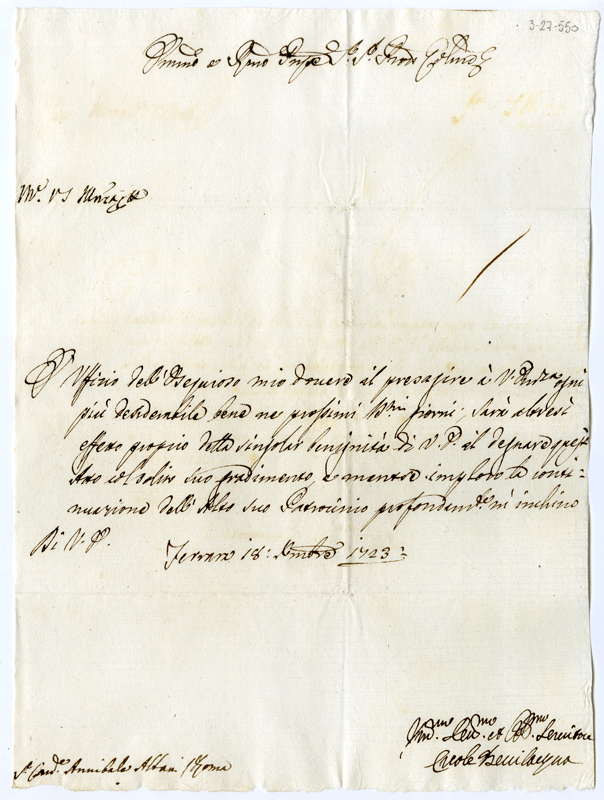 3-27-550
Em̃o e Rm̃o Sig.r P.ron Col.mo
È Uffizio dell'Ossequioso mio dovere il presagire à V. Em̃za ogni
più desiderabile bene ne prossimi S.mi Giorni. Sarà altresì
effetto proprio della singolar benignità di V. E. il degnare quest'
Atto col solito suo gradimento, e mentre imploro la conti-
nuazione dell'Alto suo Patrocinio profondam.te m'inchino
Di V. E.
Ferrara 18: Xmbre 1723:
Um.mo Dev.mo et Obb.mo Servitore
Ercole Bevilacqua
S.r Card.e Annibale Albani Roma